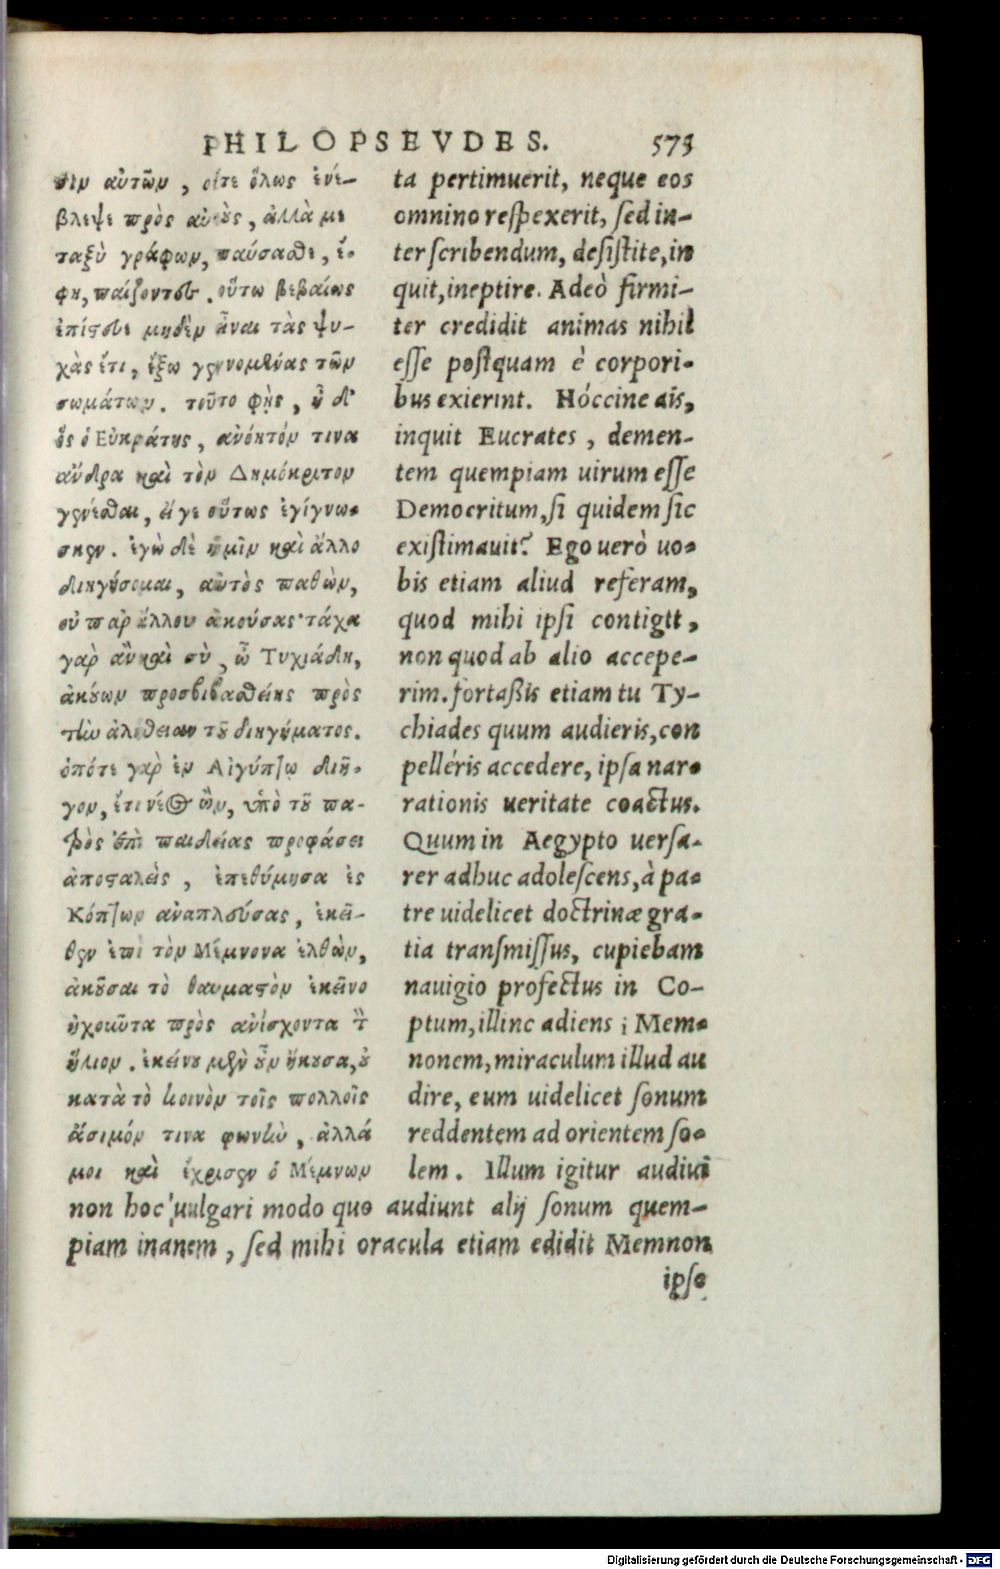 PHILOPSEVDES. 573
σιν αὐτῶν, οὔτε ὅλως ἐνέ-
βλεψε πρὸς αὐτοὺς, ἀλλὰ με
ταξὺ γράφων, παύσασθε, ἔ-
φη, παίζοντες. οὕτω βεβαίως
ἐπίστευε μηδὲν εἶναι τὰς ψυ-
χὰς ἔτι, ἔξω γενομένας τῶν
σωμάτων. τοῦτο φῂς, ἦ δ'
ὃς ὁ Εὐκράτης, ἀνόητόν τινα
ἄνδρα καὶ τὸν Δημόκριτον
γενέσθαι, εἴ γε οὕτως ἐγίγνω-
σκεν. ἐγὼ δὲ ὑμῖν καὶ ἄλλο
διηγήσομαι, αὐτὸς παθὼν,
οὐ παρ ἄλλου ἀκούσας· τάχα
γὰρ ἂν καὶ σὺ, ὦ Τυχιάδη,
ἀκούων προσβιβασθείης πρὸς
τὴν ἀλήθειαν τοῦ διηγήματος.
ὁπότε γὰρ ἐν Αἰγύπτῳ διῆ-
γον, ἔτι νέος ὢν, ὑπὸ τοῦ πα-
τρὸς ἐπὶ παιδείας προφάσει
ἀποσταλεὶς, ἐπεθύμησα ἐς
Κόπτον ἀναπλεύσας, ἐκεῖ-
θεν ἐπὶ τὸν Μέμνονα ἐλθὼν,
ἀκοῦσαι τὸ θαυμαστὸν ἐκεῖνο
ἠχοῦντα πρὸς ἀνίσχοντα τὸν
ἥλιον. ἐκείνου μὲν οὖν ἤκουσα, οὐ
κατὰ τὸ κοινὸν τοῖς πολλοῖς
ἄσημόν τινα φωνὴν, ἀλλά
μοι καὶ ἔχρησεν ὁ Μέμνων
ta pertimuerit, neque eos
omnino respexerit, sed in-
ter scribendum, desistite, in
quit, ineptire. Adeò firmi-
ter credidit animas nihil
esse postquam è corpori-
bus exierint. Hóccine ais,
inquit Eucrates, demen-
tem quempiam uirum esse
Democritum, si quidem sic
existimauit? Ego uerò uo-
bis etiam aliud referam,
quod mihi ipsi contigit,
non quod ab alio accepe-
rim. fortaßis etiam tu Ty-
chiades quum audieris, con
pelléris accedere, ipsa nar-
rationis ueritate coactus.
Quum in Aegypto uersa-
rer adhuc adolescens, à pa-
tre uidelicet doctrinæ gra-
tia transmissus, cupiebam
nauigio profectus in Co-
ptum, illinc adiens ; Mem-
nonem, miraculum illud au
dire, eum uidelicet sonum
reddentem ad orientem so-
lem. Illum igitur audiui
non hoc uulgari modo quo audiunt alij sonum quem-
piam inanem, sed mihi oracula etiam edidit Memnon
ipse
Digitalisierung gefördert durch die Deutsche Forschungsgemeinschaft - DFG